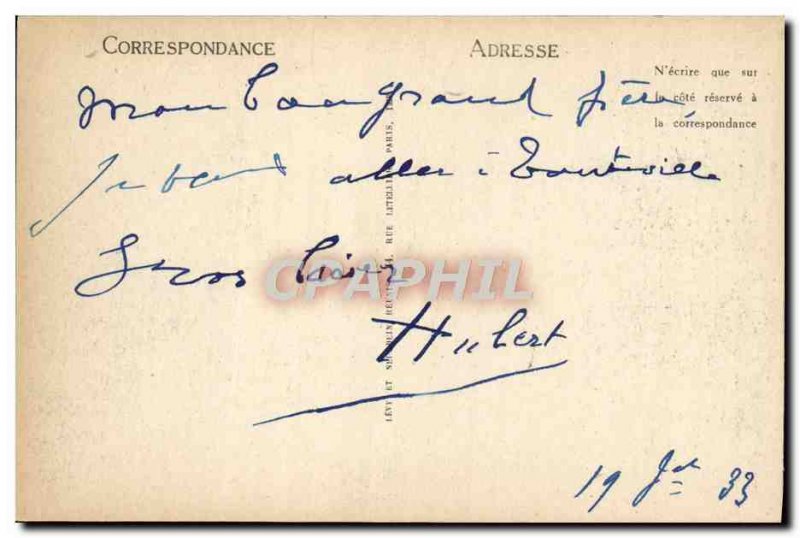 CORRESPONDANCE
ADRESSE
N'écrire que sur
le côté réservé à
la correspondance
Mon grand frère
Je aller à
Gros
Hubert
19 Jet 33
LÉVY ET NEURDEIN RÉUNIS, 44, RUE LETELLIER, PARIS
CPAPHIL